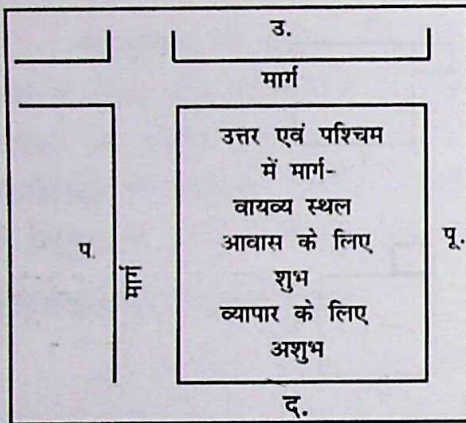 उ.
मार्ग
उत्तर एवं पश्चिम
में मार्ग-
वायव्य स्थल
आवास के लिए
शुभ
व्यापार के लिए
अशुभ
प.
मार्ग
पू.
द.